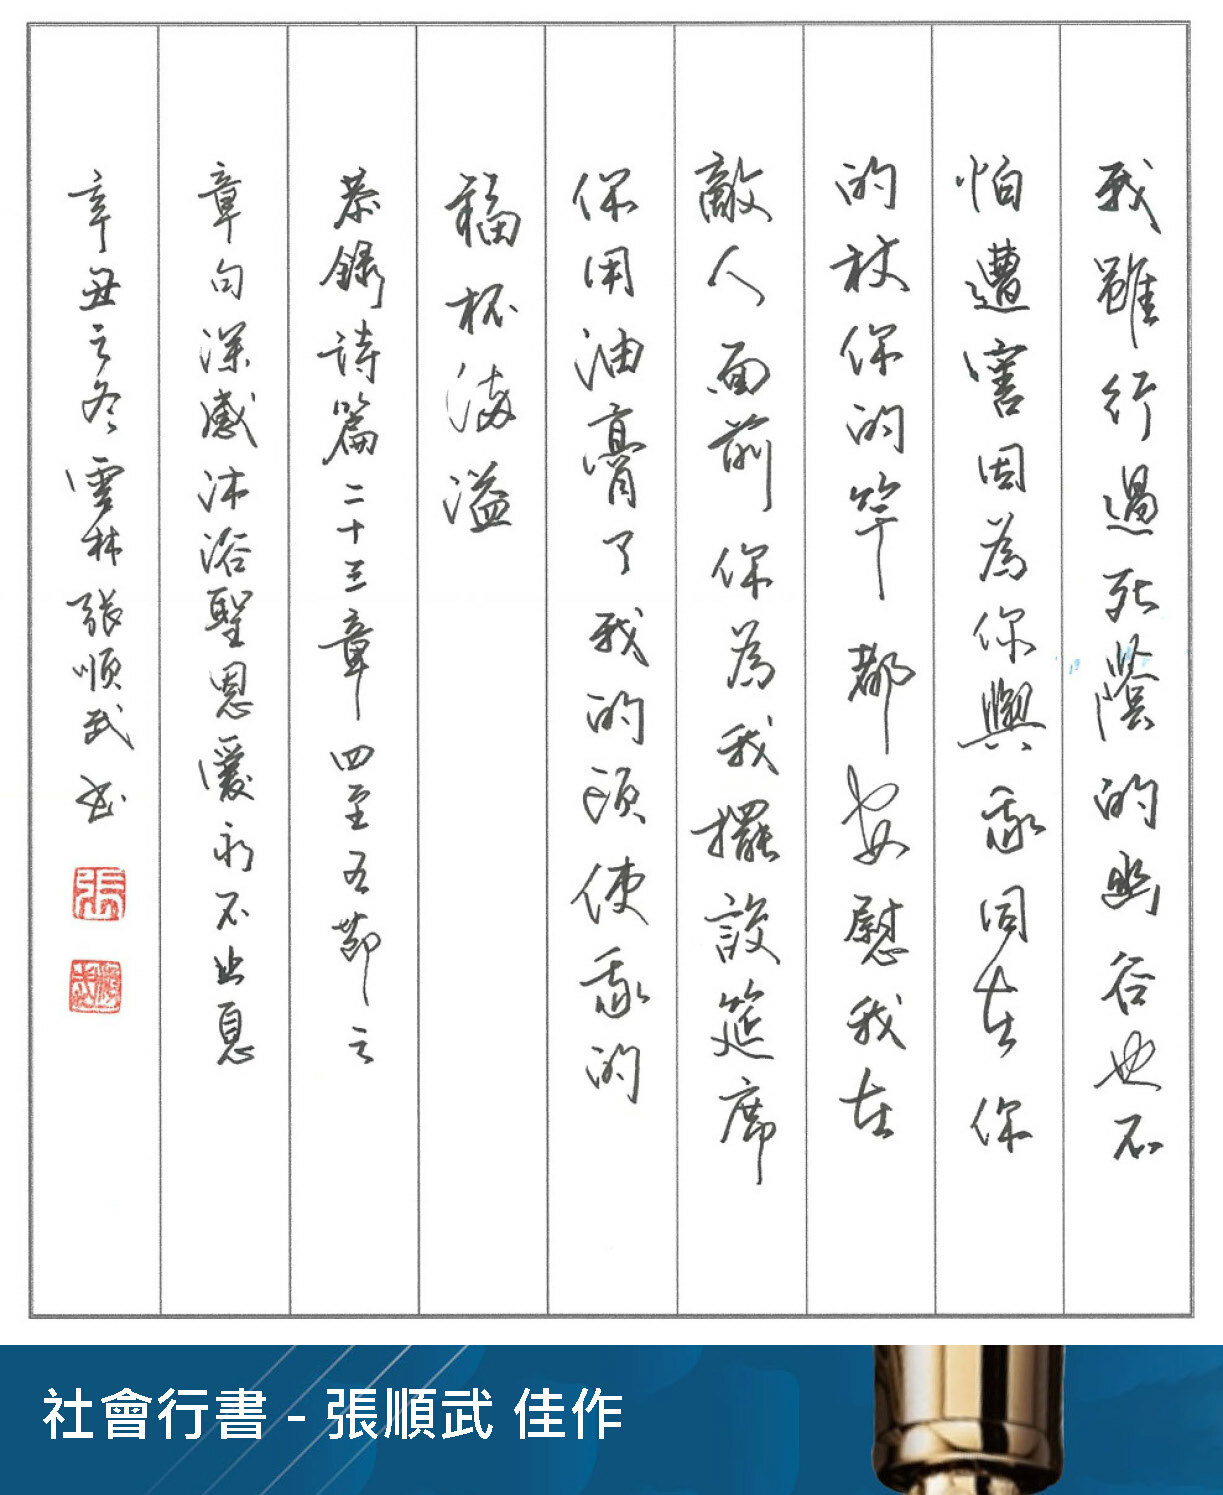 我雖行過死蔭的幽谷也不
怕遭害因為你與我同在你
的杖你的竿都安慰我在
敵人面前你為我擺設筵席
你用油膏了我的頭使我的
福杯滿溢
恭錄詩篇二十三章四至五節之
章句深感沐浴聖恩愛永不止息
辛丑之冬雲林張順武書
張
順武
社會行書 - 張順武 佳作